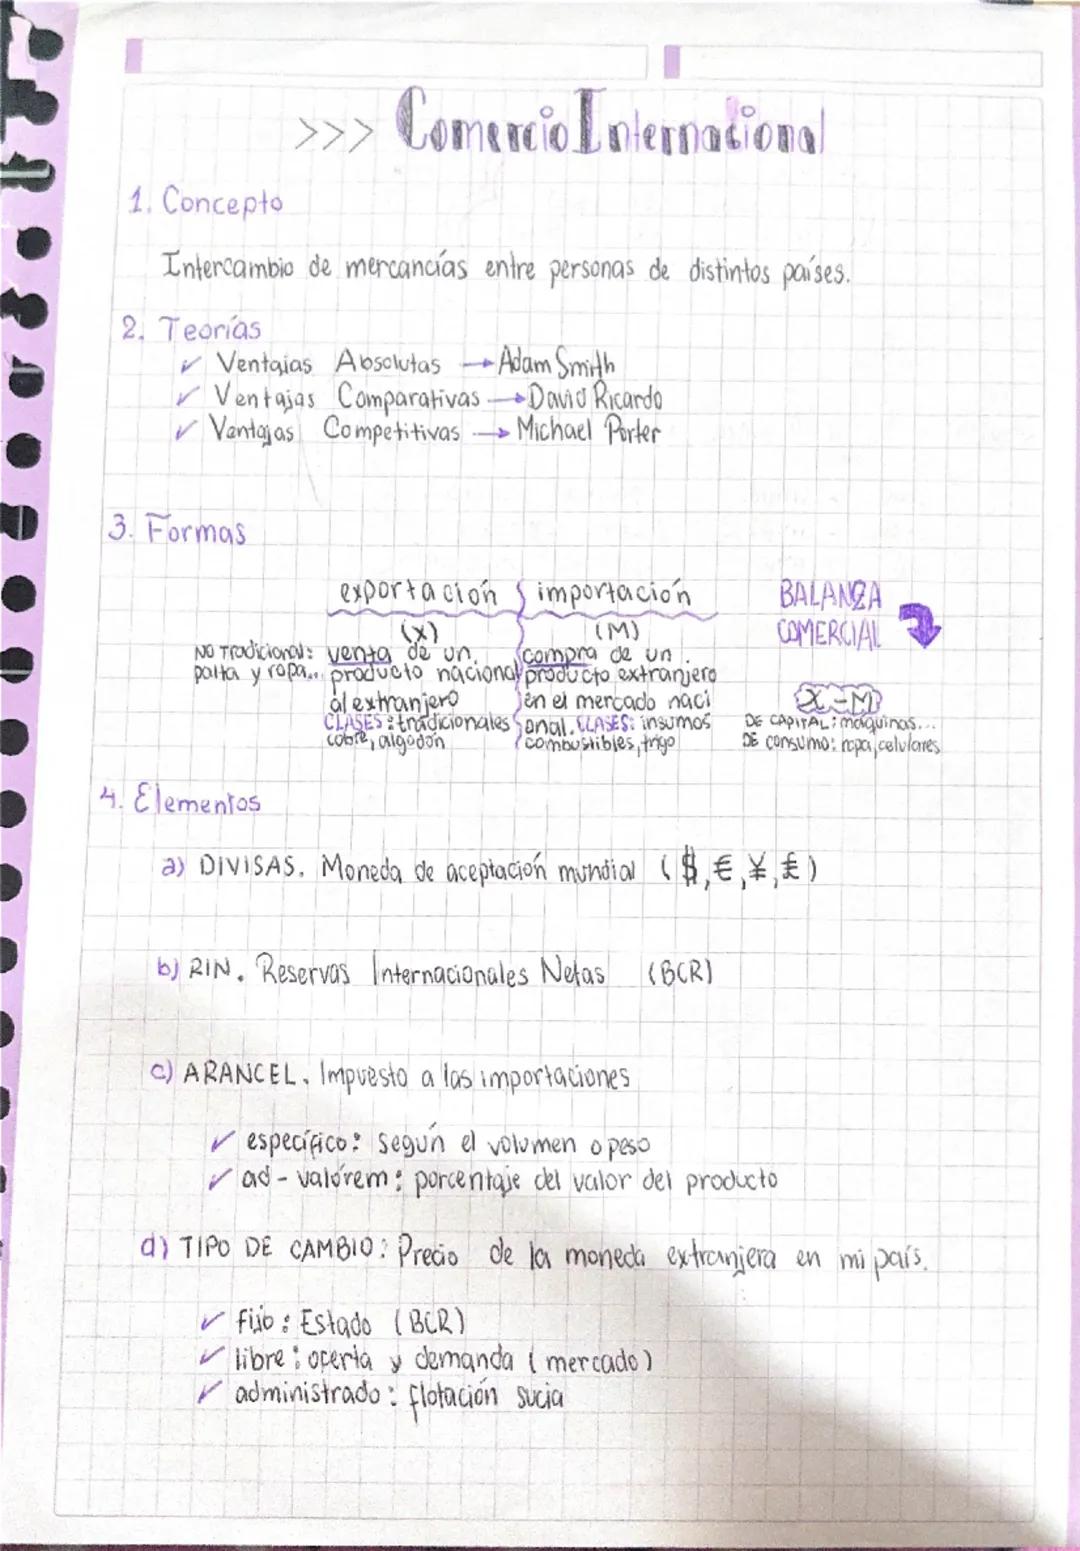 >>> Comercio Internacional
1. Concepto
Intercambio de mercancías entre personas de distintos países.
2. Teorías
✓ Ventajas Absolutas → Adam Smith
✓ Ventajas Comparativas → David Ricardo
✓ Ventajas Competitivas → Michael Porter
3. Formas
exportación
(X)
No Tradicional: venta de un
palta y ropa... producto nacional
al extranjero
CLASES: tradicionales
cobre, algodón
importación
(M)
compra de un
producto extranjero
en el mercado naci
onal. CLASES: insumos
combustibles, trigo
BALANZA
COMERCIAL
X-M
DE CAPITAL: máquinas...
DE CONSUMO: ropa, celulares
4. Elementos
a) DIVISAS. Moneda de aceptación mundial ($,€,¥,£)
b) RIN. Reservas Internacionales Netas (BCR)
c) ARANCEL. Impuesto a las importaciones
✓ específico: según el volumen o peso
✓ ad-valórem: porcentaje del valor del producto
d) TIPO DE CAMBIO: Precio de la moneda extranjera en mi país.
✓ fijo: Estado (BCR)
✓ libre: oferta y demanda (mercado)
✓ administrado: flotación sucia